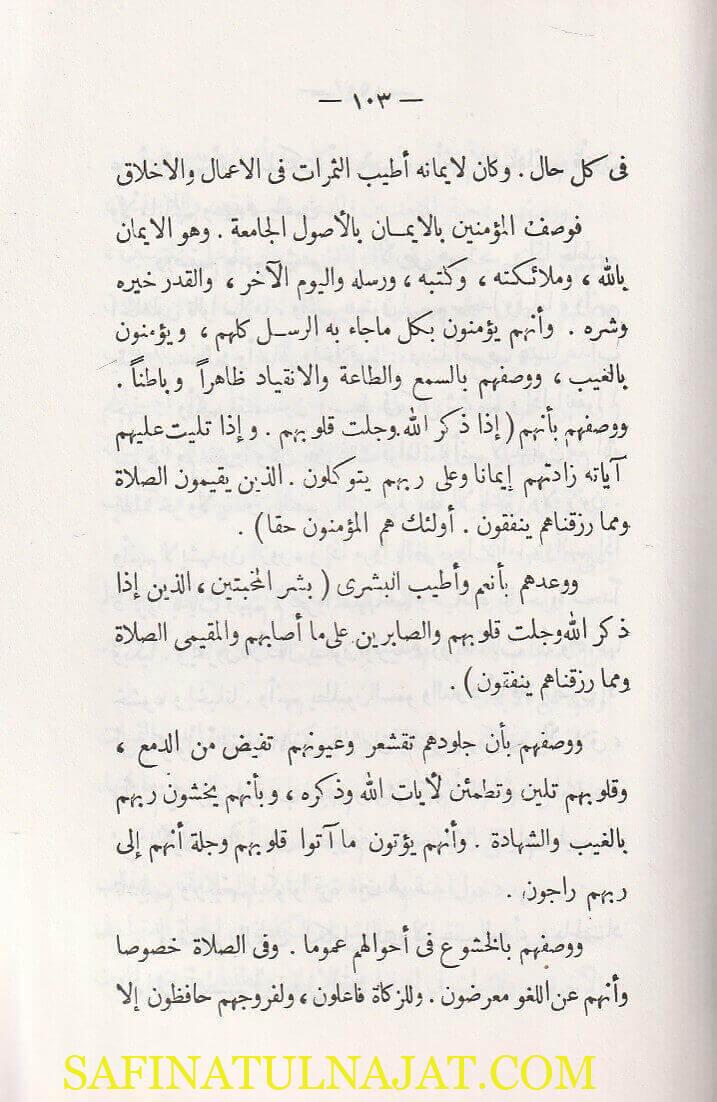 — ١٠٣ —
فى كل حال . وكان لايمانه أطيب الثمرات فى الاعمال والاخلاق
فوصف المؤمنين بالايمـان بالأصول الجامعة . وهو الايمان
بالله ، وملائكته ، وكتبه ، ورسله واليوم الآخر ، والقدر خيره
وشره . وأنهم يؤمنون بكل ماجاء به الرسـل كلهم ، ويؤمنون
بالغيب ، ووصفهم بالسمع والطاعة والانقياد ظاهراً وباطناً .
ووصفهم بأنهم ( إذا ذكر الله وجلت قلوبهم . وإذا تليت عليهم
آياته زادتهم إيمانا وعلى ربهم يتوكلون . الذين يقيمون الصلاة
ومما رزقناهم ينفقون . أولئك هم المؤمنون حقا ) .
ووعدهم بأنعم وأطيب البشرى ( بشر المخبتين ، الذين إذا
ذكر الله وجلت قلوبهم والصابرين على ما أصابهم والمقيمى الصلاة
ومما رزقناهم ينفقون ) .
ووصفهم بأن جلودهم تقشعر وعيونهم تفيض من الدمع ،
وقلوبهم تلين وتطمئن لأيات الله وذكره ، وبأنهم يخشون ربهم
بالغيب والشهادة . وأنهم يؤتون ما آتوا قلوبهم وجلة أنهم إلى
ربهم راجون .
ووصفهم بالخشوع فى أحوالهم عموما . وفى الصلاة خصوصا
وأنهم عن اللغو معرضون . وللزكاة فاعلون ، ولفروجهم حافظون إلا
SAFINATULNAJAT.COM